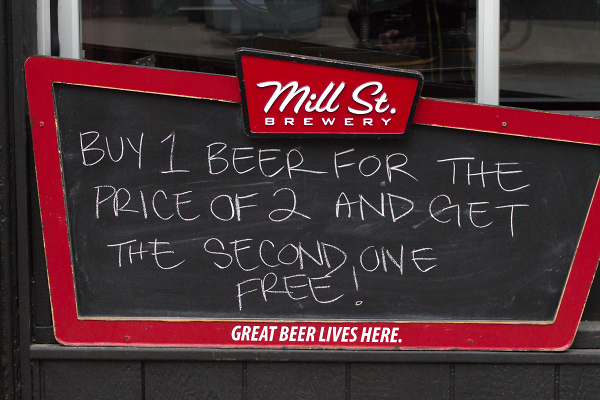 Mill St.
BREWERY
BUY 1 BEER FOR THE
PRICE OF 2 AND GET
THE SECOND ONE
FREE!
GREAT BEER LIVES HERE.